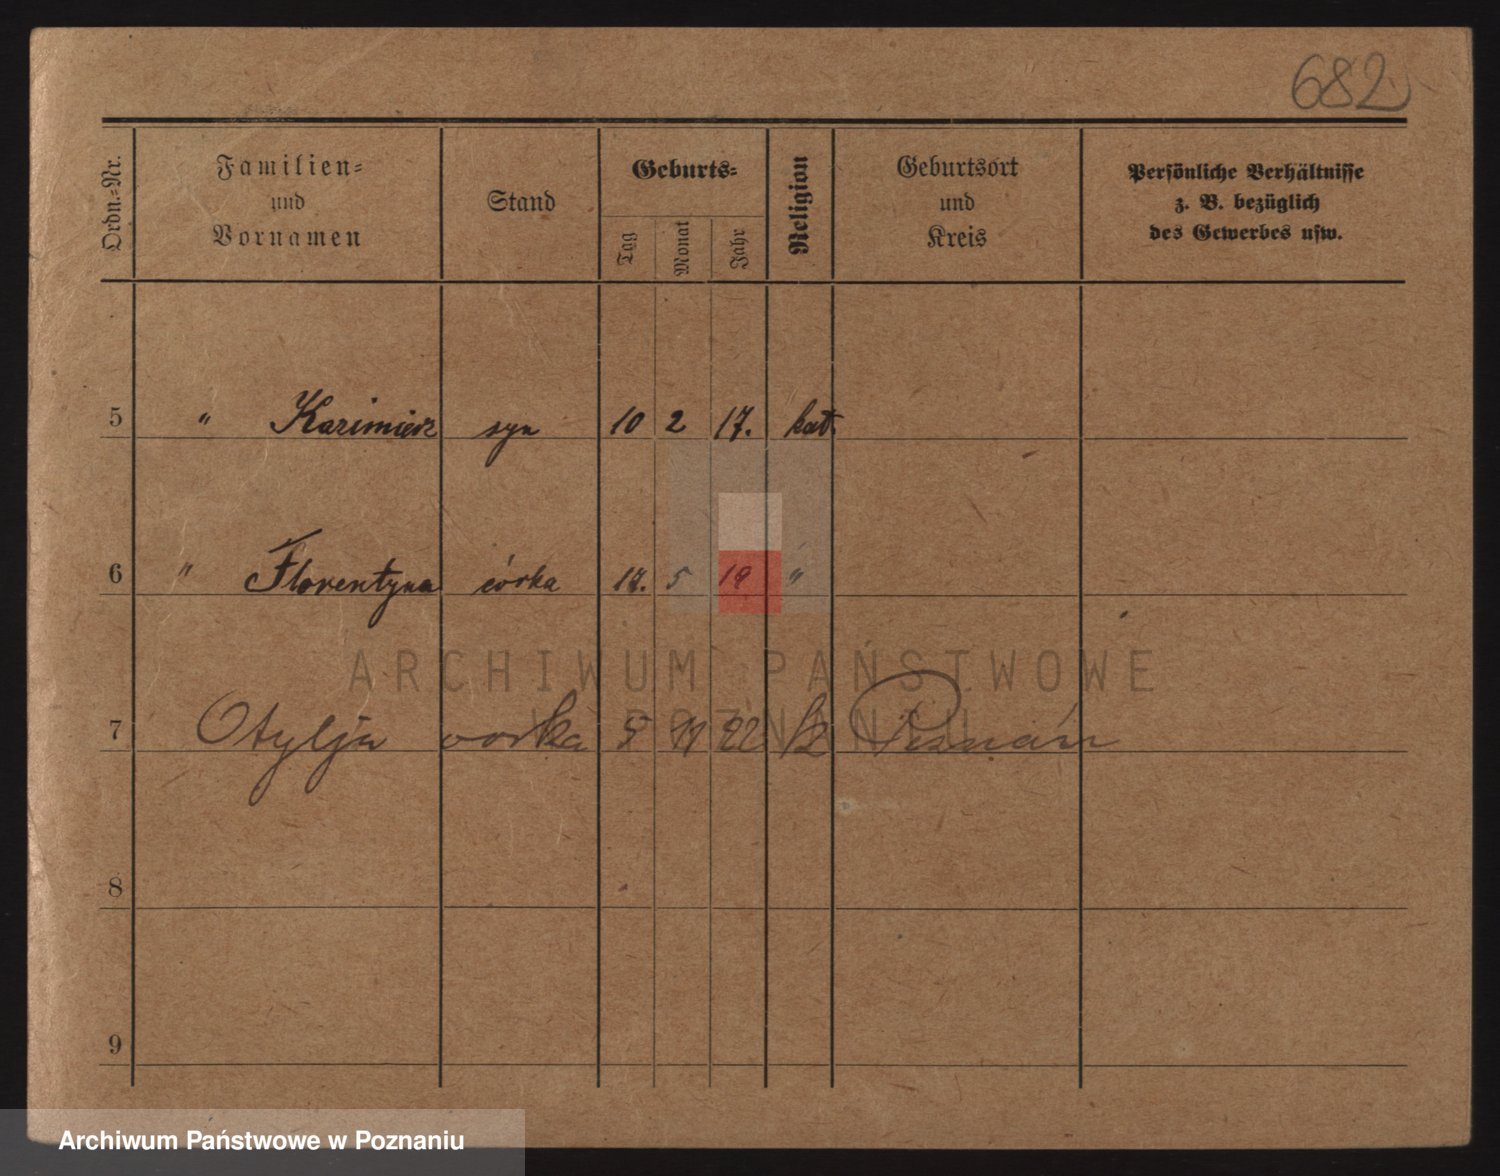 682
Ordn.-Nr.
Familien- und Vornamen
Stand
Geburts-
Tag
Monat
Jahr
Religion
Geburtsort und Kreis
Persönliche Verhältnisse z. B. bezüglich des Gewerbes usw.
5 " Kazimierz syn 10 2 17. kat.
6 " Florentyna córka 17. 5 19 "
7 Otylja córka 5 11 22 k Poznań
8
9
ARCHIWUM PAŃSTWOWE
W POZNANIU
Archiwum Państwowe w Poznaniu